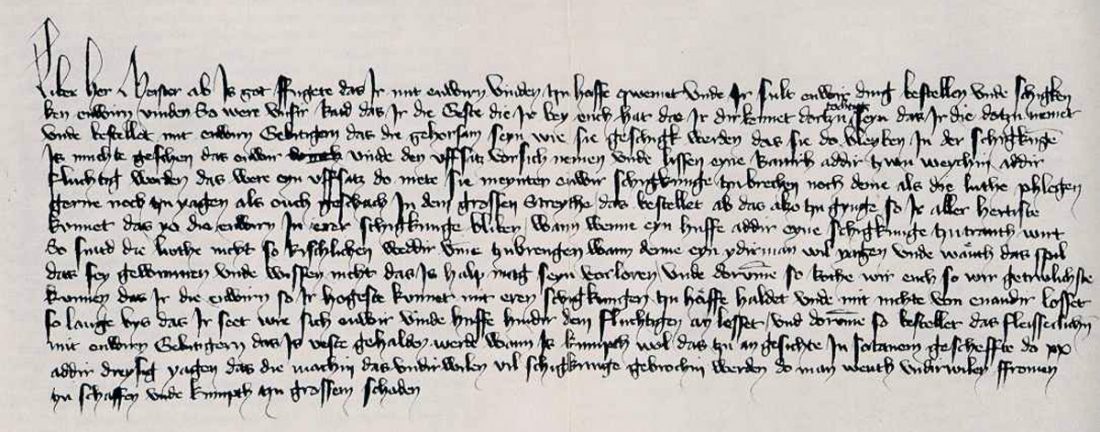 Liber her Meister ab Is got ffugete das Ir mit euwirn vinden czu hoffe qwemet vnde Ir sult euwir ding bestellen vnde schigken
ken euwirn vinden So were vnsir Rad das Ir die Geste die Ir bey euch hat die Ir dirkennet dorczu tochtig seyn das Ir die dorczu nemet
vnde bestellet mit euwirn Gebitigern das die gehorsam seyn wie sie geschigk werden das sie do bleyben In der schigkunge
Is muchte geschen das euwir vinde den vffsatz vorsich nemen vnde lissen eyne banir addir czwu weychin addir
fluchtig werden das were eyn vffsatz do mete sie meynten euwir schigkunge czu brechen noch deme als die luthe phlegen
gerne noch czu yagen als ouch geschach In dem grossen Streythe das bestellet ab das also czu gynge so Ir aller hertiste
kunnet das yo die euwirn In erer schigkunge bliben wann wenne eyn huffe addir eyne schigkunge czutranth wirt
So sind die luthe nicht so Rischlichen weddir vme czubrengen wann denne eyn ydirman wil yagen vnde wänth das spil
das sey gewunnen vnde wissen nicht das Is halp mag seyn vorloren vnde dorvmme so Rathe wir euch so wir getruwlichste
kunnen das Ir die euwirn so Ir hogeste kunnet mit eren schigkungen czu häffe haldet vnde mit nichte von enandir losset
so lange bys das Ir seet wie sich euwir vinde huffe hindir dem fluchtigen an losset vnd dorvmme so bestellet das fleisseclichen
mit euwirn Gebitigern das Is veste gehalden werde wann Is kumpth wol das czu angesichte In sotanem gescheffte do xx
addir dreysig yagen das die machin das vndirwilen vil schigkunge gebrochin werden do man wenth vndirwilen ffromen
czu schaffen vnde kumpth czu grossem schaden